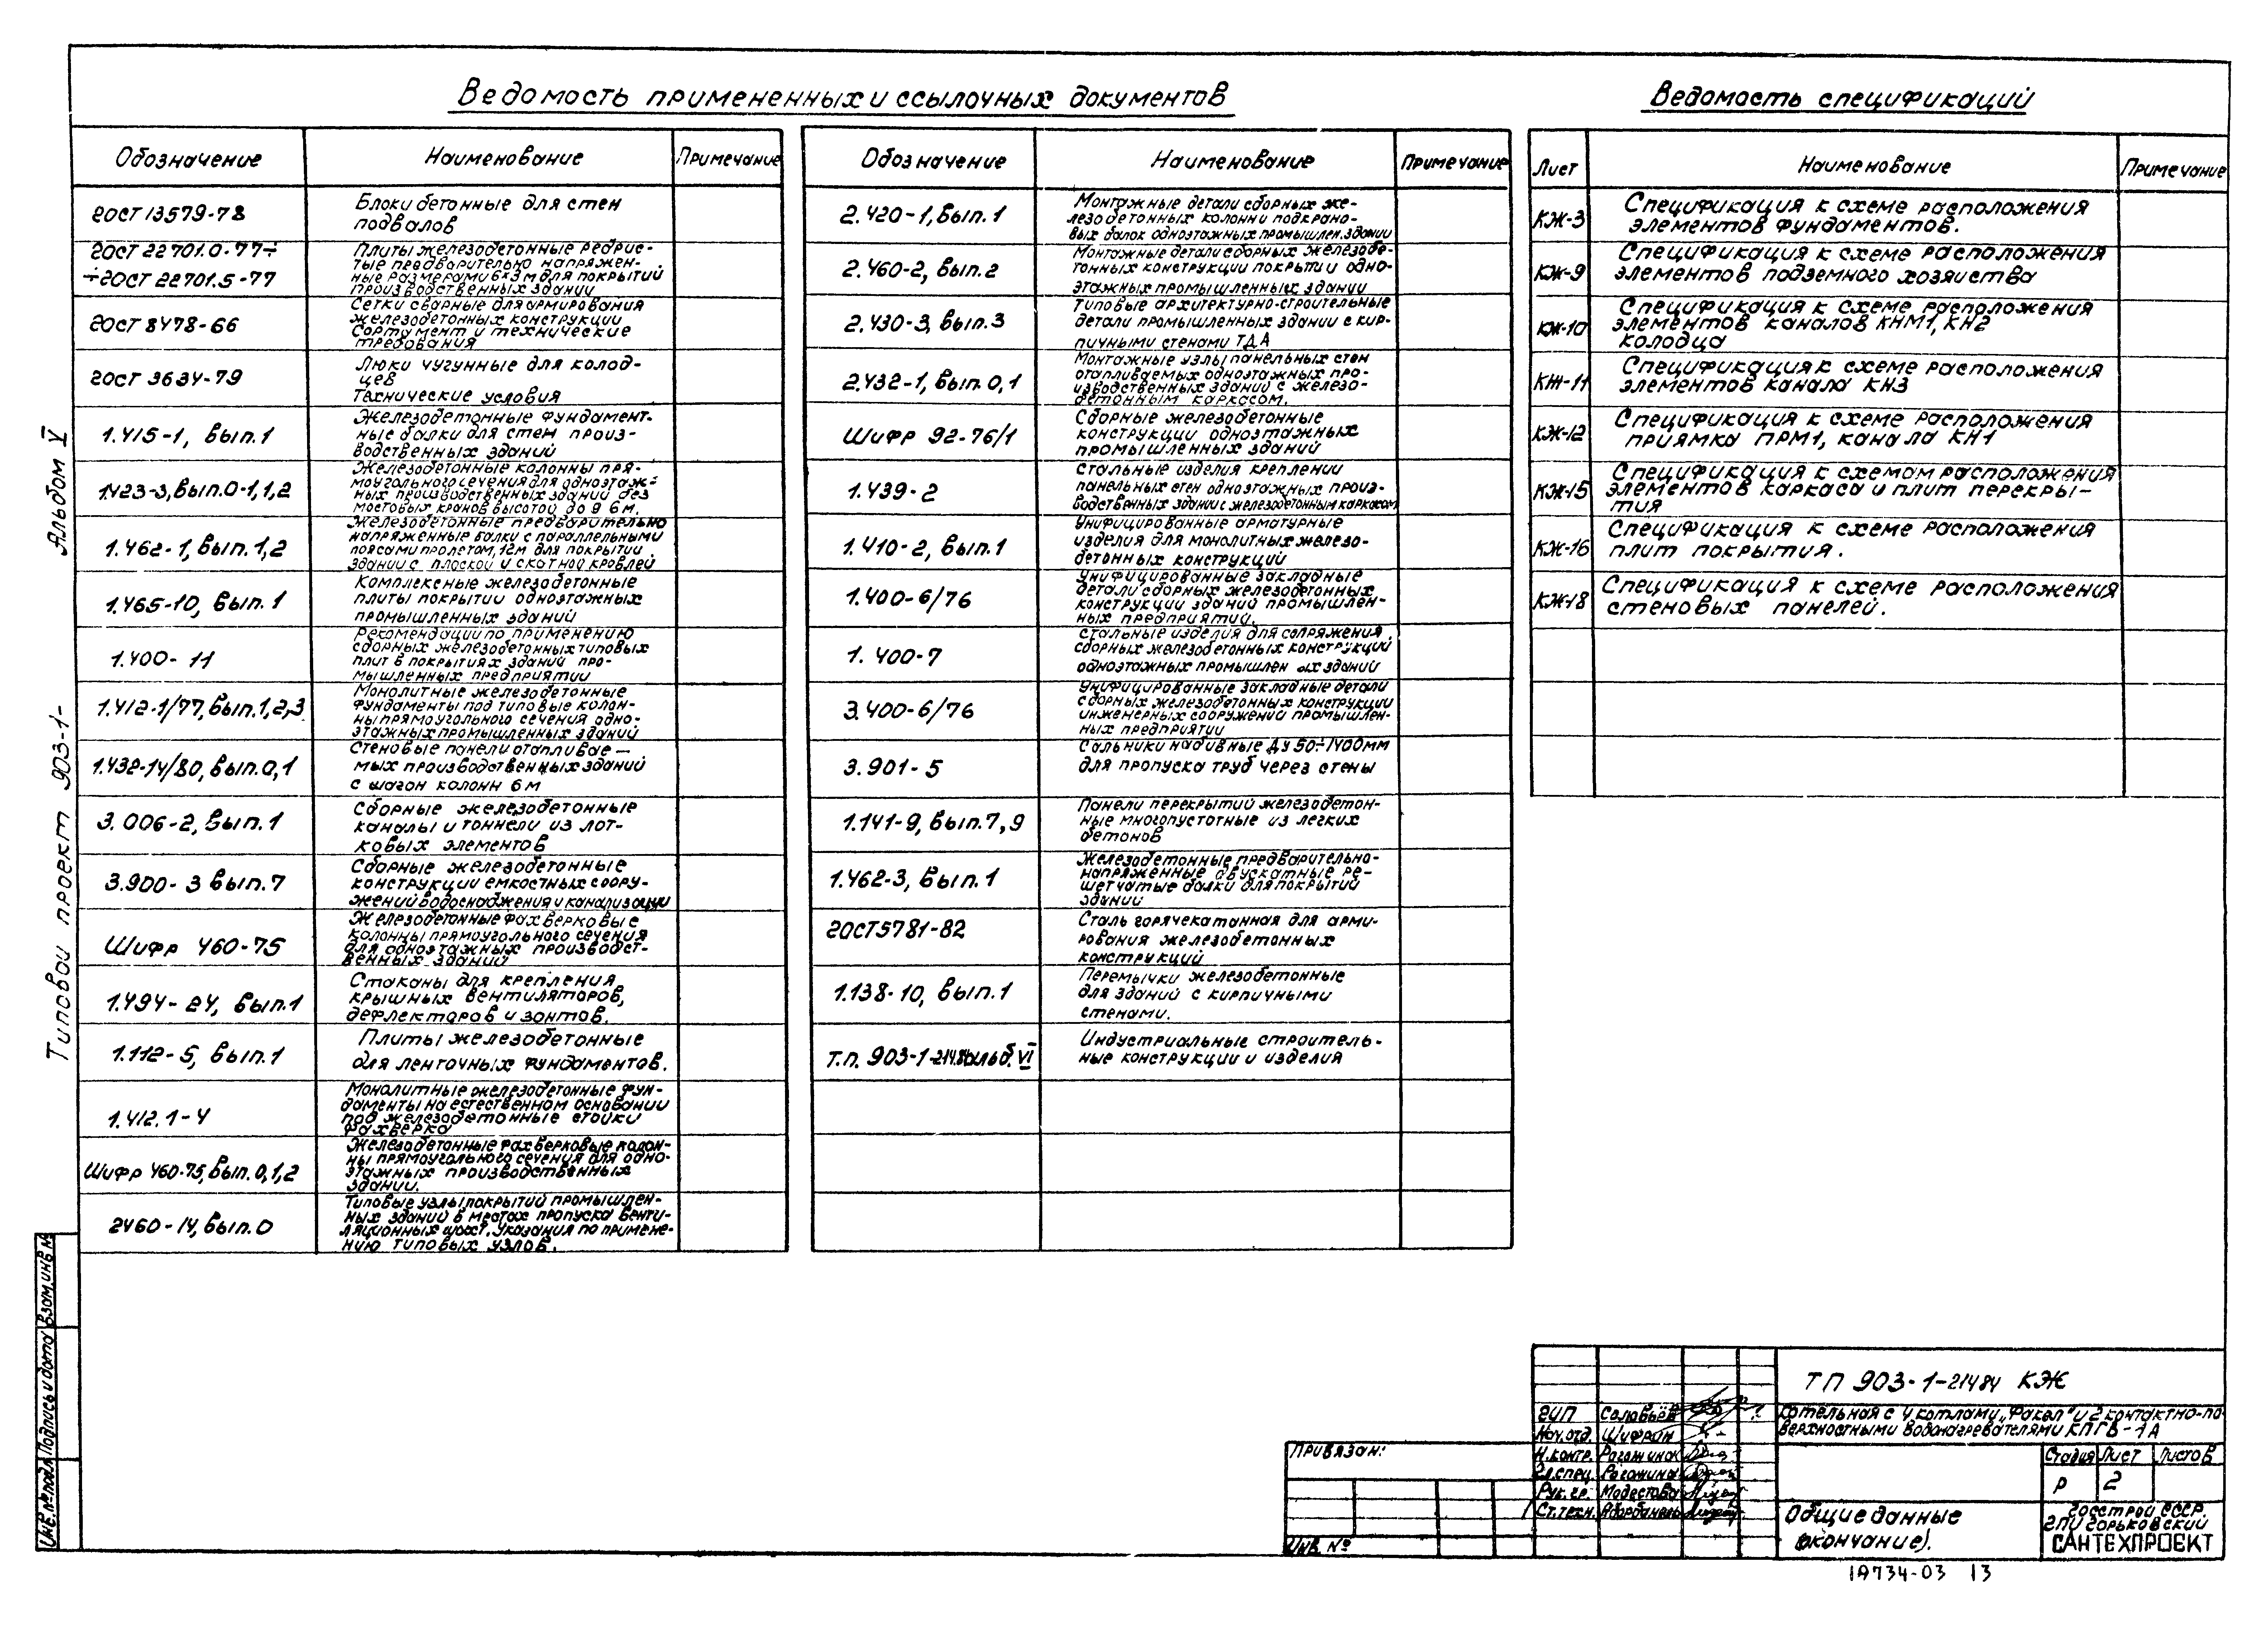 Ведомость примененных и ссылочных документов
Обозначение Наименование Примечание
ГОСТ 13579-78 Блоки бетонные для стен
подвалов
ГОСТ 22701.0-77÷
÷ГОСТ 22701.5-77
Плиты железобетонные ребрис-
тые предварительно напряжен-
ные размерами 6×3м для покрытий
производственных здании
ГОСТ 8478-66
Сетки сварные для армирования
железобетонных конструкции
Сортамент и технические
требования
ГОСТ 3634-79
Люки чугунные для колод-
цев
Технические условия
1.415-1, вып.1
Железобетонные фундамент-
ные балки для стен произ-
водственных зданий
1.423-3, вып.0-1,1,2
Железобетонные колонны пря-
моугольного сечения для одноэтаж-
ных производственных зданий без
мостовых кранов высотой до 9 6м.
1.462-1, вып.1,2
Железобетонные предварительно
напряженные балки с параллельными
поясами пролетом, 12м для покрытии
здании с плоской и скатной кровлей
1.465-10, вып.1
Комплексные железобетонные
плиты покрытии одноэтажных
промышленных зданий
1.400-11
Рекомендации по применению
сборных железобетонных типовых
плит в покрытиях зданий про-
мышленных предприятии
1.412-1/77, вып.1,2,3
Монолитные железобетонные
фундаменты под типовые колон-
ны прямоугольного сечения одно-
этажных промышленных зданий
1.432-14/80, вып.0,1
Стеновые панели отапливае-
мых производственных зданий
с шагон колонн 6м
3.006-2, вып.1
Сборные железобетонные
каналы и тоннели из лот-
ковых элементов
3.900-3 вып.7
Сборные железобетонные
конструкции емкостных соору-
жений водоснабжения и канализации
Шифр 460-75
Железобетонные фахверковые
колонны прямоугольного сечения
для одноэтажных производст-
венных зданий
1.494-24, вып.1
Стаканы для крепления
крышных вентиляторов,
дефлекторов и зонтов.
1.112-5, вып.1
Плиты железобетонные
для ленточных фундаментов.
1.412.1-4
Монолитные железобетонные фун-
даменты на естественном основании
под железобетонные стойки
фахверка
Шифр 460-75, вып.0,1,2
Железобетонные фахверковые колон-
ны прямоугольного сечения для одно-
этажных производственных
зданий.
2460-14, вып.0
Типовые узлы покрытий промышлен-
ных зданий в местах пропуска венти-
ляционных шахт. Указания по примене-
нию типовых узлов.
Обозначение Наименование Примечание
2.420-1, вып.1
Монтажные детали сборных же-
лезобетонных колонн и подкрано-
вых балок одноэтажных промышлен. здании
2.460-2, вып.2
Монтажные детали сборных железобе-
тонных конструкции покрытии одно-
этажных промышленных здании
2.430-3, вып.3
Типовые архитектурно-строительные
детали промышленных здании с кир-
пичными стенами ТДА
2.432-1, вып.0,1
Монтажные узлы панельных стен
отапливаемых одноэтажных про-
изводственных зданий с железо-
бетонным каркасом.
Шифр 92-76/1
Сборные железобетонные
конструкции одноэтажных
промышленных зданий
1.439-2
Стальные изделия креплении
панельных стен одноэтажных произ-
водственных здании с железобетонным каркасом
1.410-2, вып.1
Унифицированные арматурные
изделия для монолитных железо-
бетонных конструкций
1.400-6/76
Унифицированные закладные
детали сборных железобетонных
конструкции зданий промышлен-
ных предприятий.
1.400-7
Стальные изделия для сопряжения
сборных железобетонных конструкций
одноэтажных промышлен ых зданий
3.400-6/76
Унифицированные закладные детали
сборных железобетонных конструкции
инженерных сооружений промышлен-
ных предприятии
3.901-5
Сальники набивные Ду 50÷1400мм
для пропуска труб через стены
1.141-9, вып.7,9
Панели перекрытий железобетон-
ные многопустотные из легких
бетонов
1.462-3, вып.1
Железобетонные предварительно-
напряженные двускатные ре-
шетчатые балки для покрытий
зданий
ГОСТ 5781-82
Сталь горячекатанная для арми-
рования железобетонных
конструкций
1.138-10, вып.1
Перемычки железобетонные
для зданий с кирпичными
стенами.
Т.п. 903-1-214.84 альб. VI
Индустриальные строитель-
ные конструкции и изделия
Ведомость спецификаций
Лист Наименование Примечание
КЖ-3
Спецификация к схеме расположения
элементов фундаментов.
КЖ-9
Спецификация к схеме расположения
элементов подземного хозяиства
КЖ-10
Спецификация к схеме расположения
элементов каналов КНМ1, КН2
колодца
КЖ-11
Спецификация к схеме расположения
элементов канала КН3
КЖ-12
Спецификация к схеме расположения
приямка ПРМ1, канала КН1
КЖ-15
Спецификация к схемам расположения
элементов каркаса и плит перекры-
тия
КЖ-16
Спецификация к схеме расположения
плит покрытия.
КЖ-18
Спецификация к схеме расположения
стеновых панелей.
Типовой проект 903-1- Альбом V
Инв.№подл. Подпись и дата Взам.инв.№
Привязан:
Инв. №
ГИП Соловьёв
Нач.отд. Шифрин
Н.контр. Рогожина
Гл.спец. Рогожина
Рук.гр. Модестова
Ст.техн. Абарбанель
ТП 903-1-214 84 КЖ
Котельная с 4 котлами „Факел" и 2 контактно-по-
верхностными водонагревателями КПГВ-1А
Стадия Лист Листов
Р 2
Общие данные
(окончание).
Госстрой СССР
ГПИ Горьковский
САНТЕХПРОЕКТ
19734-03 13